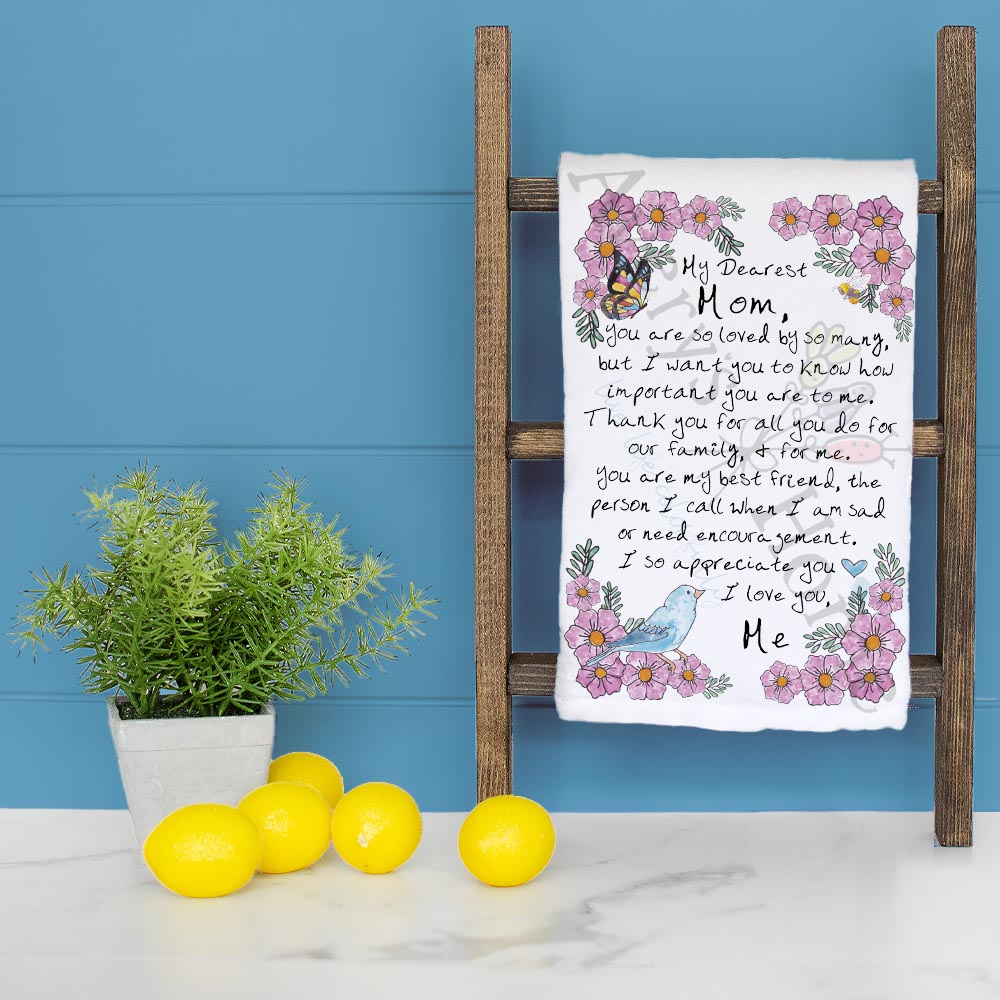 My Dearest
Mom,
You are so loved by so many,
but I want you to know how
important you are to me.
Thank you for all you do for
our family, & for me.
You are my best friend, the
person I call when I am sad
or need encouragement.
I so appreciate you
I love you,
Me